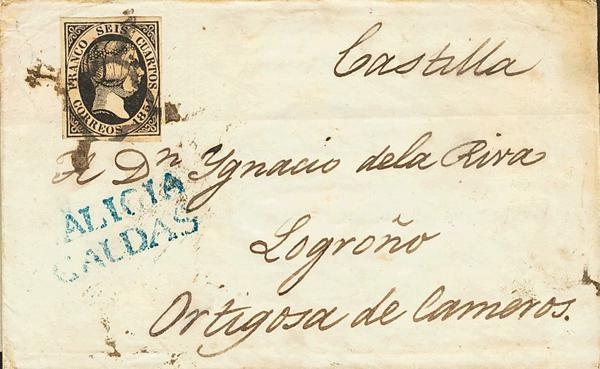 FRANCO SEIS CUARTOS
CORREOS 1851
Castilla
A Dn Ygnacio dela Riva
ALICIA
CALDAS
Logroño
Ortigosa de Cameros.